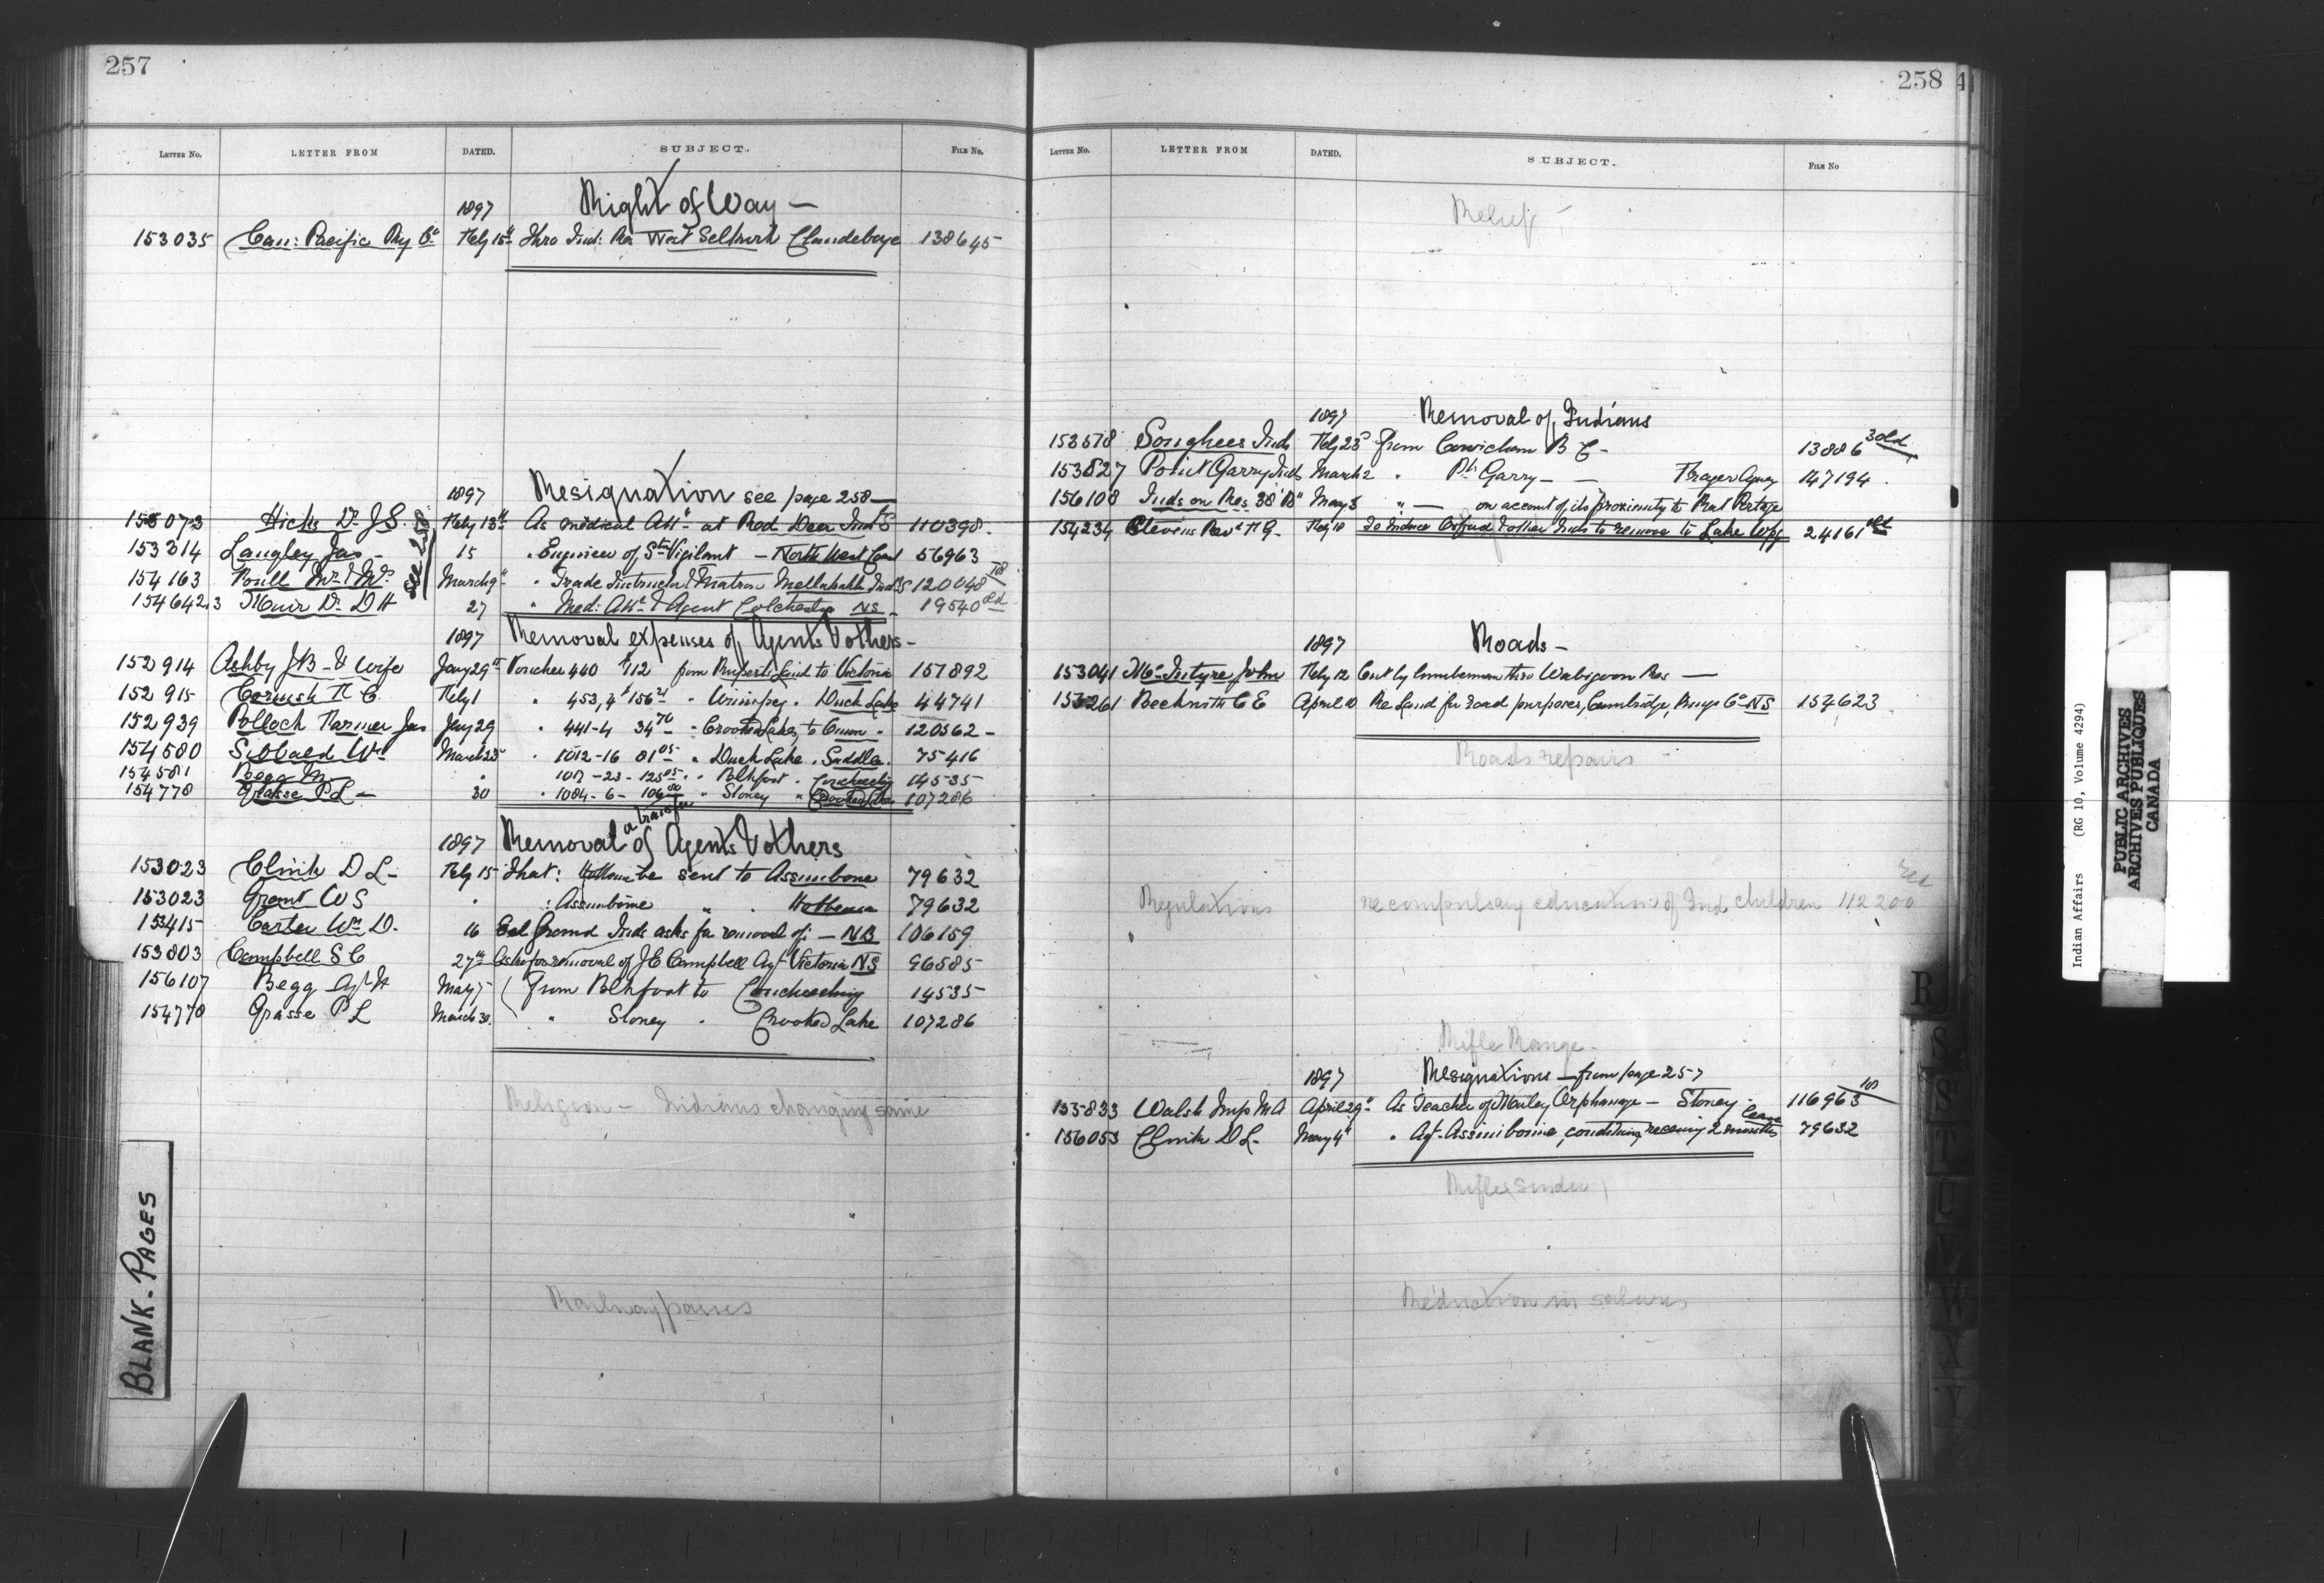 257
LETTER No. LETTER FROM DATED. SUBJECT. FILE No.
1897 Right of Way —
153035 Can: Pacific Ry Co Feby 15th Thro Ind: Res West Selkirk Clandeboye 138645
1897 Resignation see page 258 —
153073 Hicks Dr J S. Feby 13th As medical Att. at Red Deer Ind S 110398
153314 Langley Jas — 15 " Engineer of Str Vigilant — North West Coast 56963
see 258
154163 Mr & Mrs March 9 " Trade Instructor & Matron Ind S 120048
154642,3 Muir Dr D H 27 " Med: Att & Agent Colchester NS — 19540 old
1897 Removal expenses of Agents & others —
152914 Ashby J B — & wife Jany 29th Voucher 440 $112 from Ruperts Land to Victoria 157892
152915 Cornish H C. Feby 1 " 453,4 $156 " Winnipeg " Duck Lake 44741
152939 Pollock Farmer Jas Jany 29 " 441-4 34 70 " Crooked Lakes to Onion " 120562 —
154580 Sibbald Wm March 23 " 1012-16 81 05 " Duck Lake " Saddle " 75416
154581 Begg M " 1017-23- 125 05 " Blkfoot " Couchiching 14535
154778 Grasse P L — 30 " 1084-6- 106 80 " Stoney " Crooked Lake 107286
1897 Removal or transfer of Agents & others
153023 Clink D L — Feby 15 That: Hobbema be sent to Assinibone 79632
153023 Grant W S " : Assinibone " " Hobbema 79632
153415 Carter Wm D. 16 Eel Ground Inds asks for removal of: — NB 106159
153803 Campbell S C 27th Asks for removal of J E Campbell Agt Victoria NS 96585
156107 Begg Agt M May 5 From Blkfoot to Couchiching 14535
154778 Grasse P L March 30. " Stoney " Crooked Lake 107286
Religion — Indians changing same
Railway passes
BLANK - PAGES
258
4
LETTER No. LETTER FROM DATED. SUBJECT. FILE No
Relief
1897 Removal of Indians
153578 Songhees Inds Feby 23d From Cowichan B C — 13886 3 old
153827 Point Garry Inds March 2 " Pt Garry — — Fraser Agency 147194
156108 Inds on Res 38 "B" May 5 " — on account of its proximity to Rat Portage
154234 Stevens Revd F G — Feby 18 To Induce Oxford & other Inds to remove to Lake Wpg 24161 old
1897 Roads —
153041 McIntyre John Feby 12 Cut by lumberman thro Wabigoon Res —
155261 Beckwith C E April 10 Re Land for road purposes, Cambridge, Kings Co NS 154623
Roads repairs —
Regulations re compulsory education of Ind children 112200
Rifle Range —
1897 Resignations — from page 257
155833 Walsh Insp M A April 29th As Teacher of Morley Orphanage — Stoney 116963
156053 Clink D L — May 4th " Agt Assiniboine, conditionally receiving 2 months leave 79632
Reduction in salaries
R
S
T
U
V
W
X
Y
Indian Affairs (RG 10, Volume 4294)
PUBLIC ARCHIVES
ARCHIVES PUBLIQUES
CANADA